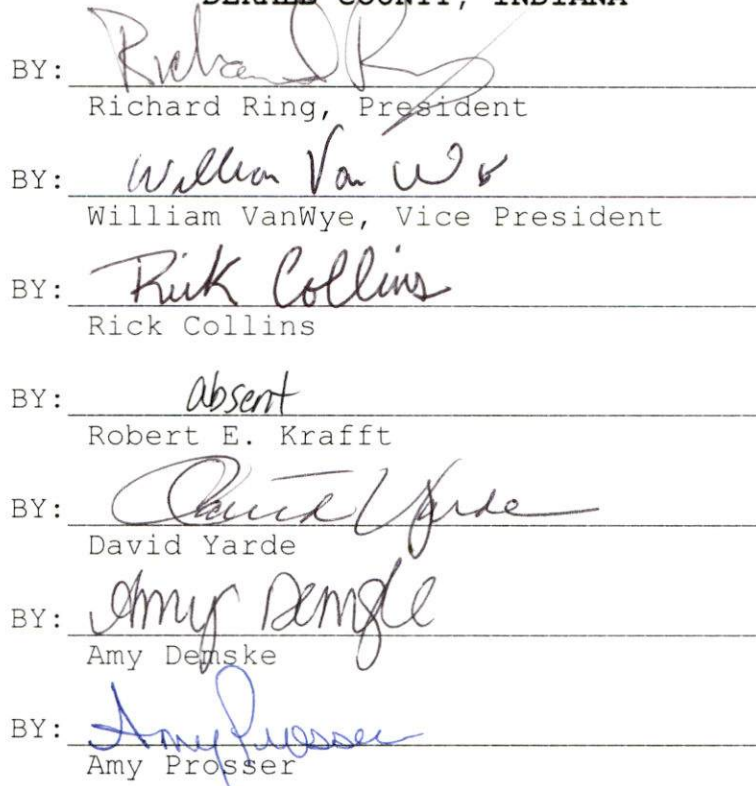 DEKALB COUNTY, INDIANA
BY: Richard Ring
Richard Ring, President
BY: William Van W
William VanWye, Vice President
BY: Rick Collins
Rick Collins
BY: absent
Robert E. Krafft
BY: David Yarde
David Yarde
BY: Amy Demske
Amy Demske
BY: Amy Prosser
Amy Prosser